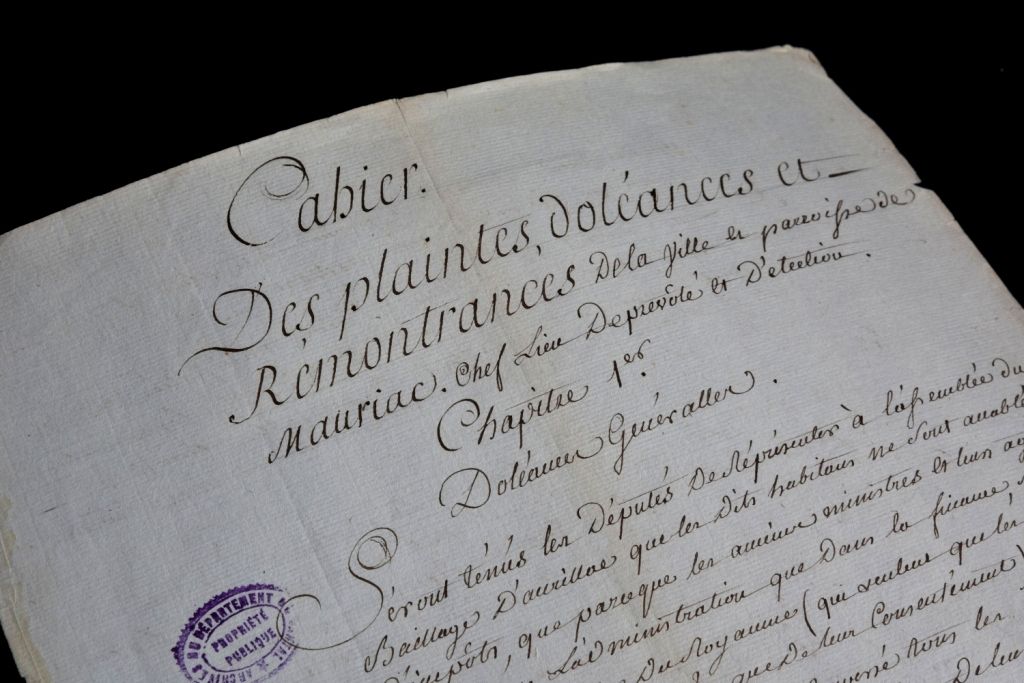 Cahier.
Des plaintes, doléances et
Rémontrances de la ville et parroisse de
Mauriac. Chef Lieu De prévôté et D'étection.
Chapitre 1er.
Doléances Genéralles.
Séront ténus les Députés De Répresenter à l'assemblée du
Bailliage D'aurillac que les dits habitans ne sont accablé
D'impôts, que parceque les anciens ministres et leurs ag
L'administration que Dans la finance,
Du Royaume (qui veulent que les
que De leur Consentement)
tous les
De leu
ARCHIVES DU DÉPARTEMENT
PROPRIÉTÉ
PUBLIQUE